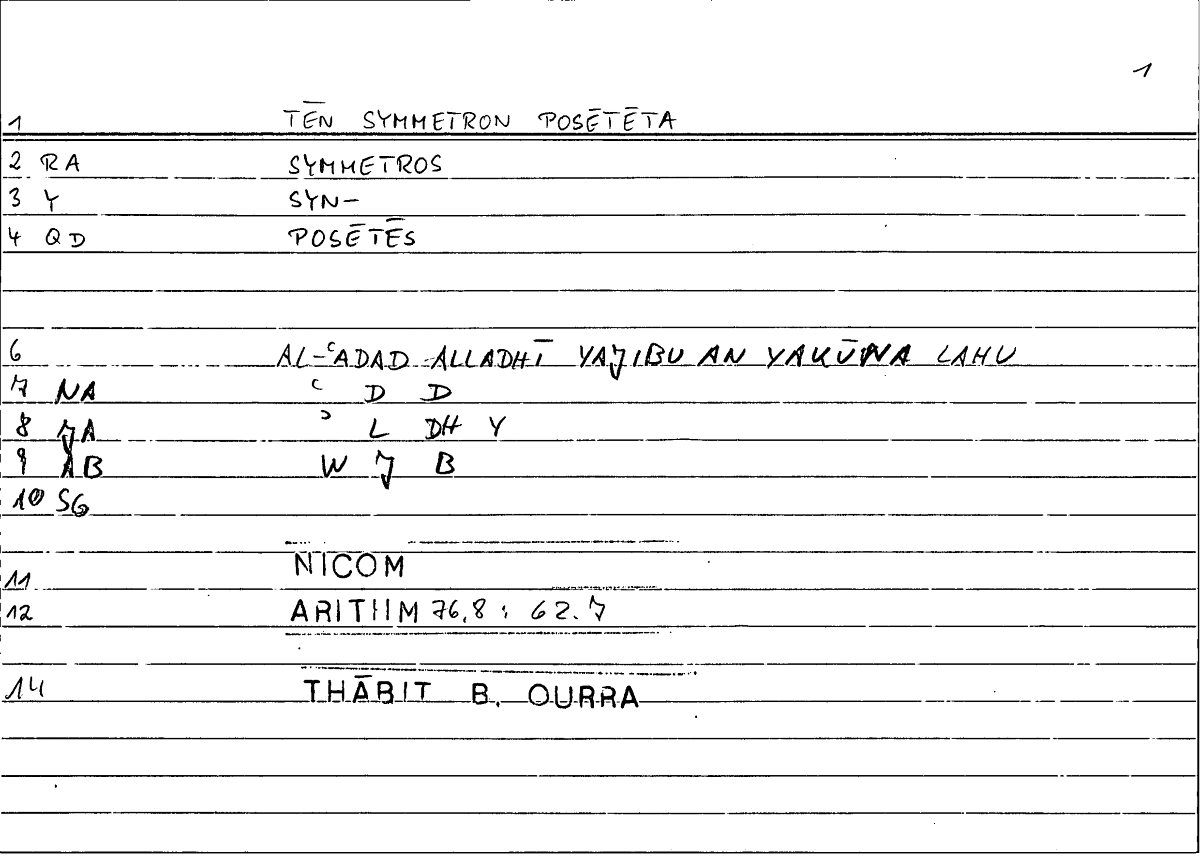 1
1 TĒN SYMMETRON POSĒTĒTA
2 RA SYMMETROS
3 Y SYN-
4 QD POSĒTĒS
6 AL-ʿADAD ALLADHĪ YAJIBU AN YAKŪNA LAHU
7 NA ʿ D D
8 JA ʾ L DH Y
9 AB W J B
10 SG
11 NICOM
12 ARITHM 76,8 : 62.7
14 THĀBIT B. QURRA